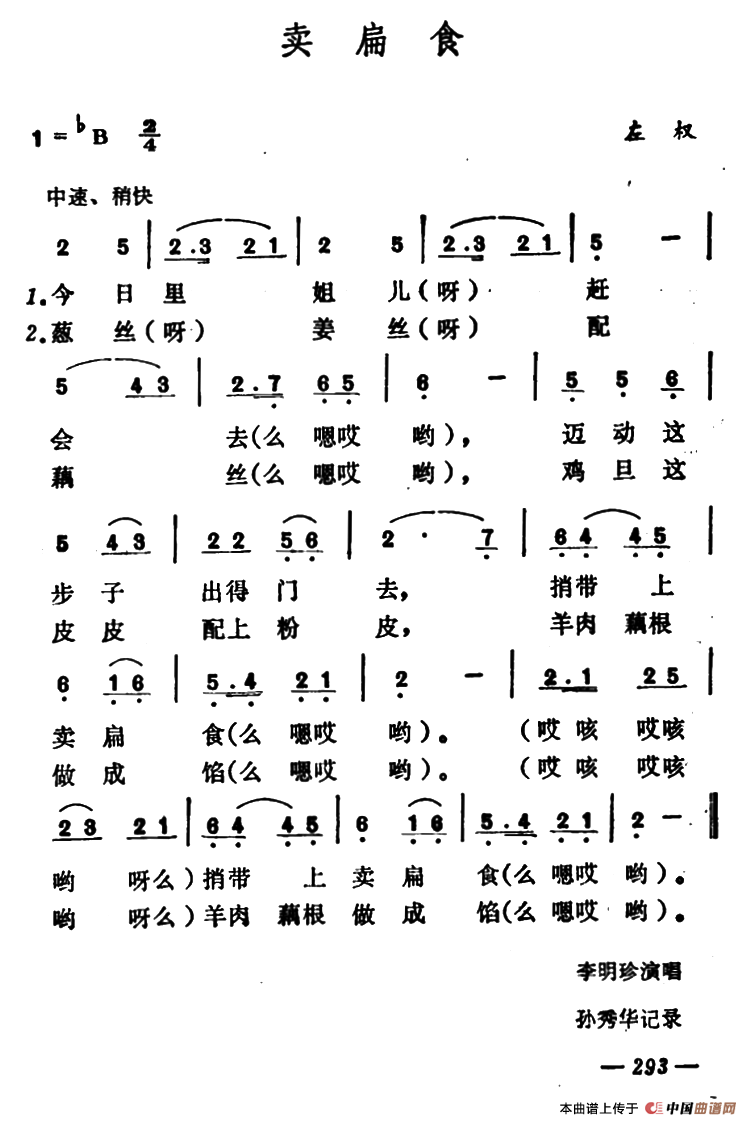 卖扁食
1=♭B 2/4 左权
中速、稍快
2 5 | 2.3 21 | 2 5 | 2.3 21 | 5 — |
1.今日里 姐儿(呀) 赶
2.葱丝(呀) 姜丝(呀) 配
5 43 | 2.7 65 | 6 — | 5 5 6 |
会 去(么嗯哎 哟), 迈动这
藕 丝(么嗯哎 哟), 鸡旦这
5 43 | 22 56 | 2 · 7 | 64 45 |
步子 出得门 去, 捎带 上
皮皮 配上粉 皮, 羊肉藕根
6 16 | 5.4 21 | 2 — | 2.1 25 |
卖扁 食(么 嗯哎 哟)。 (哎咳 哎咳
做成 馅(么 嗯哎 哟)。 (哎咳 哎咳
23 21 | 64 45 | 6 16 | 5.4 21 | 2 — ‖
哟 呀么)捎带 上卖扁 食(么 嗯哎 哟)。
哟 呀么)羊肉 藕根做成 馅(么 嗯哎 哟)。
李明珍演唱
孙秀华记录
— 293 —
本曲谱上传于 中国曲谱网